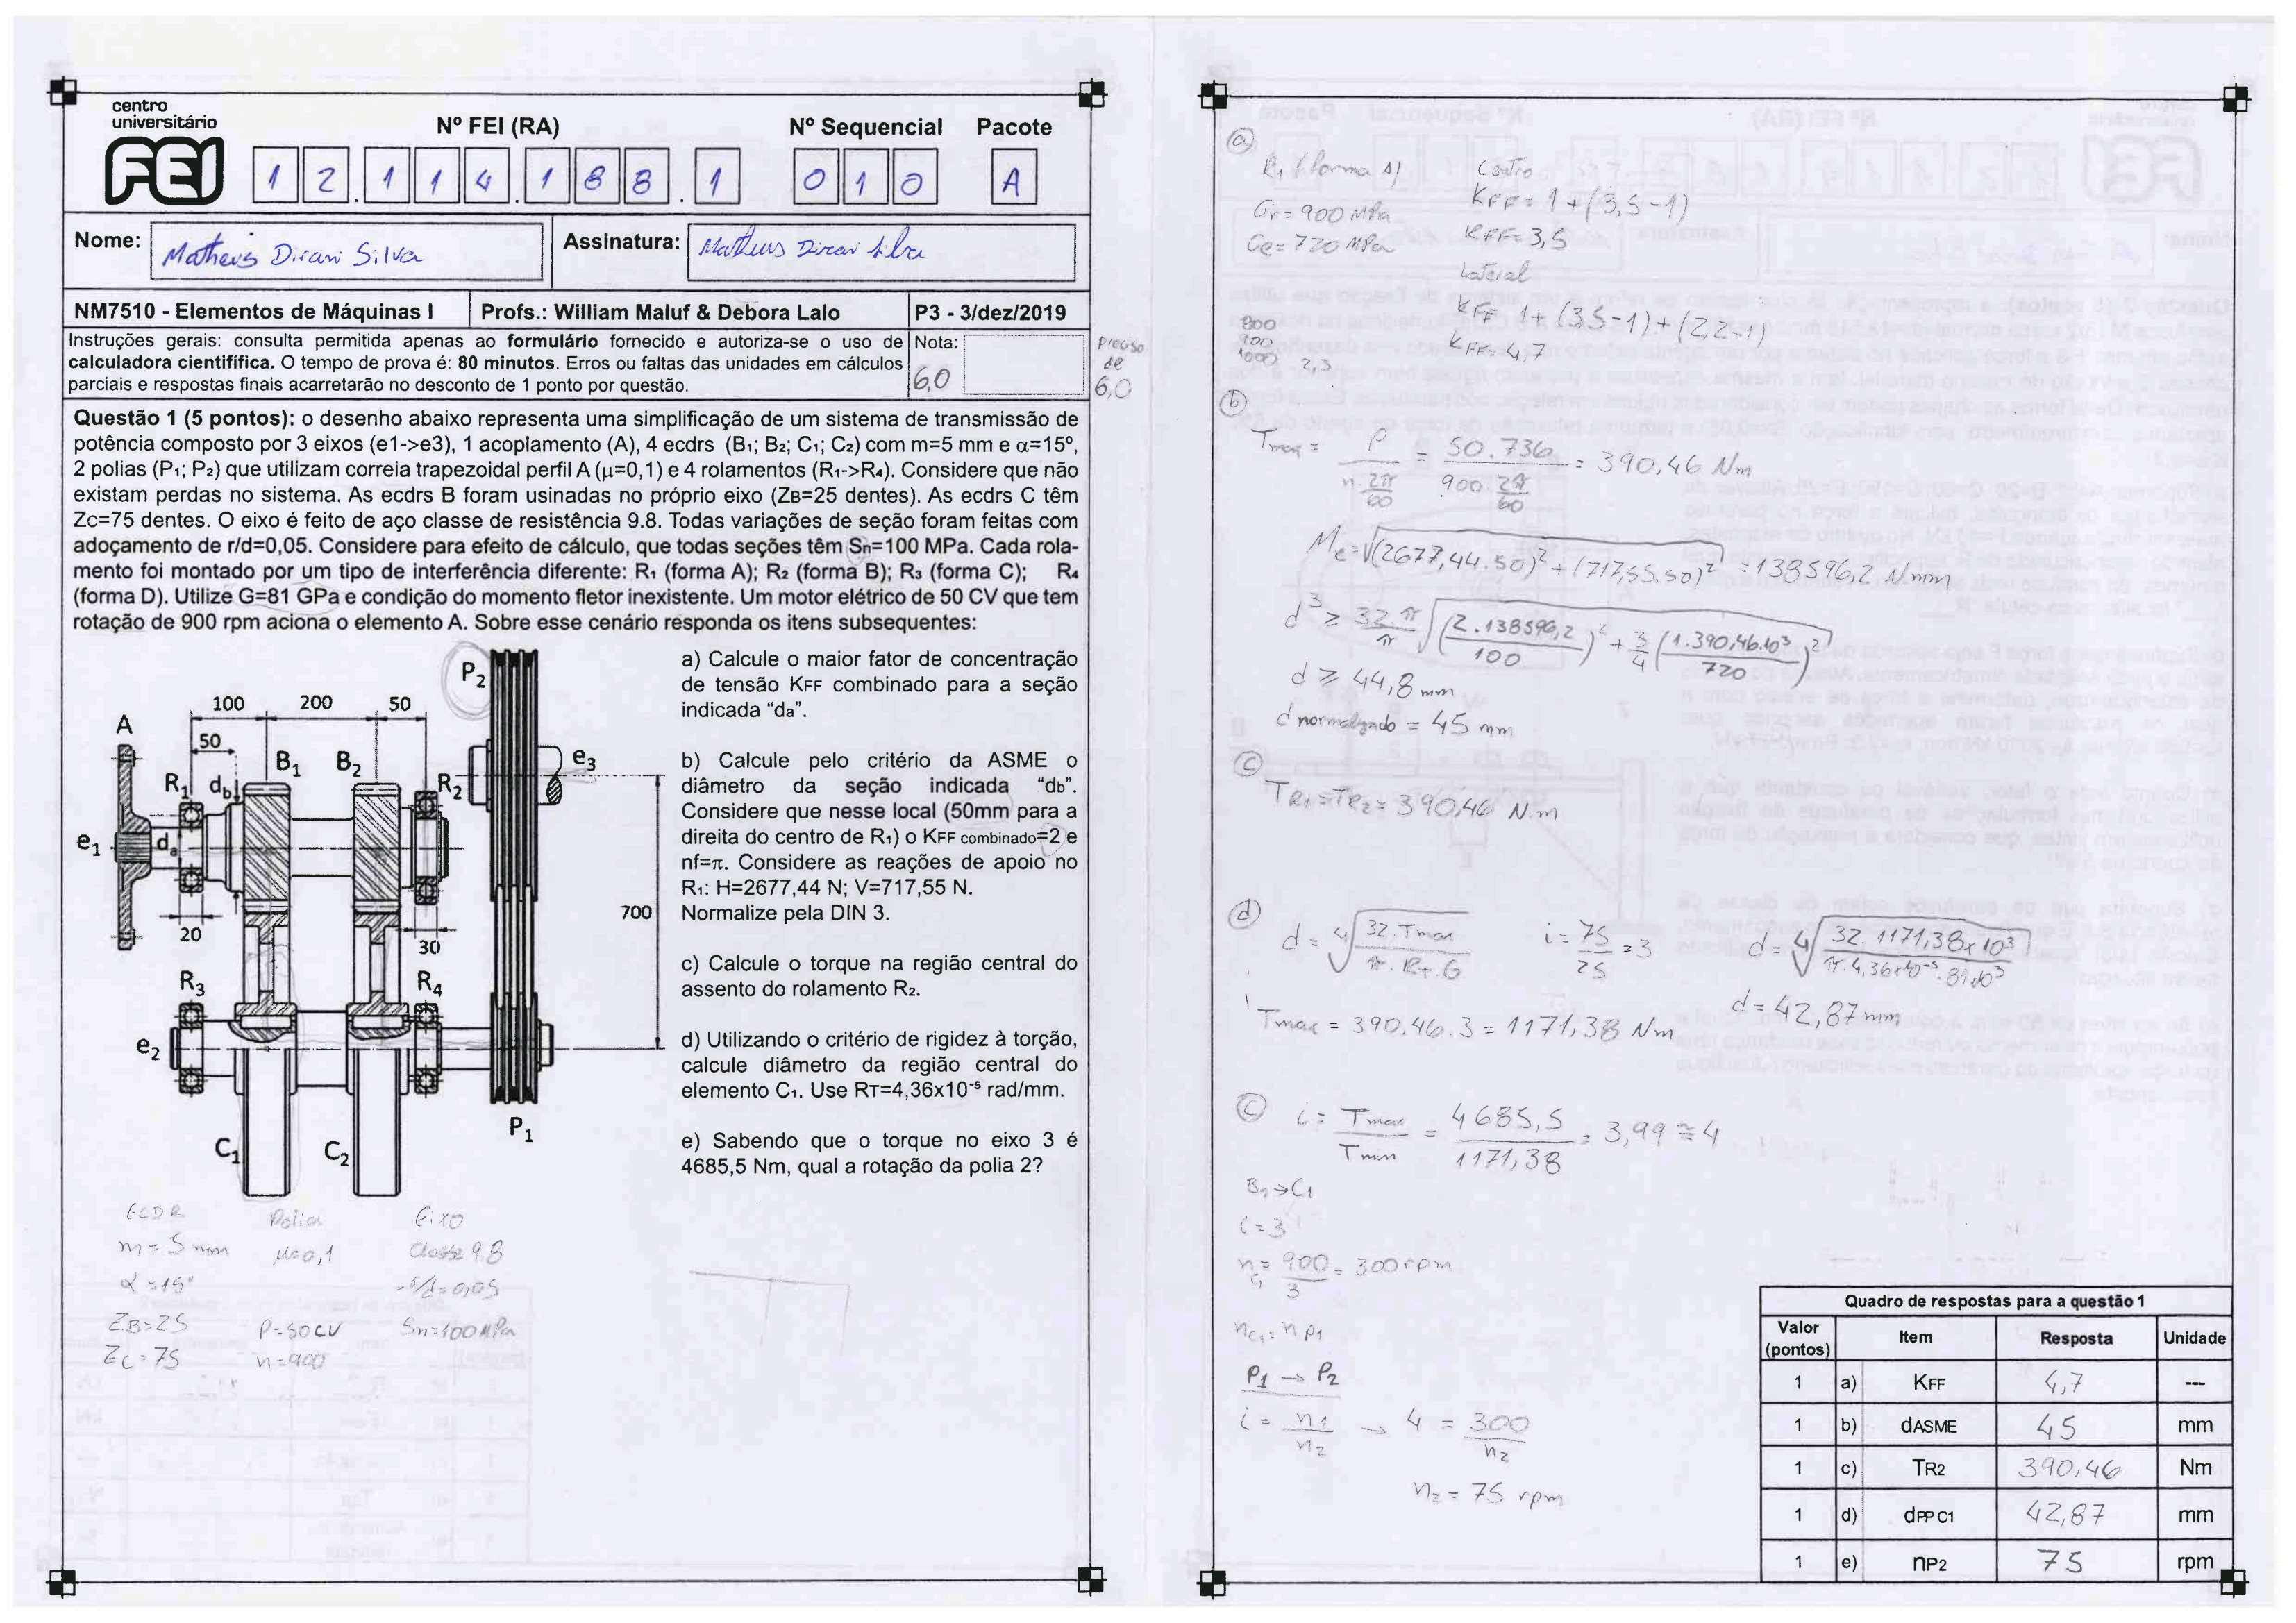 centro
universitário
FEI
Nº FEI (RA)
Nº Sequencial
Pacote
1 2 . 1 1 4 . 1 8 8 . 1
0 1 0
A
Nome: Matheus Dirani Silva
Assinatura: Matheus Dirani Silva
NM7510 - Elementos de Máquinas I
Profs.: William Maluf & Debora Lalo
P3 - 3/dez/2019
Instruções gerais: consulta permitida apenas ao formulário fornecido e autoriza-se o uso de
calculadora cientifífica. O tempo de prova é: 80 minutos. Erros ou faltas das unidades em cálculos
parciais e respostas finais acarretarão no desconto de 1 ponto por questão.
Nota:
6,0
preciso
de
6,0
Questão 1 (5 pontos): o desenho abaixo representa uma simplificação de um sistema de transmissão de
potência composto por 3 eixos (e1->e3), 1 acoplamento (A), 4 ecdrs (B1; B2; C1; C2) com m=5 mm e α=15º,
2 polias (P1; P2) que utilizam correia trapezoidal perfil A (μ=0,1) e 4 rolamentos (R1->R4). Considere que não
existam perdas no sistema. As ecdrs B foram usinadas no próprio eixo (ZB=25 dentes). As ecdrs C têm
Zc=75 dentes. O eixo é feito de aço classe de resistência 9.8. Todas variações de seção foram feitas com
adoçamento de r/d=0,05. Considere para efeito de cálculo, que todas seções têm Sn=100 MPa. Cada rola-
mento foi montado por um tipo de interferência diferente: R1 (forma A); R2 (forma B); R3 (forma C); R4
(forma D). Utilize G=81 GPa e condição do momento fletor inexistente. Um motor elétrico de 50 CV que tem
rotação de 900 rpm aciona o elemento A. Sobre esse cenário responda os itens subsequentes:
a) Calcule o maior fator de concentração
de tensão KFF combinado para a seção
indicada “da”.
b) Calcule pelo critério da ASME o
diâmetro da seção indicada “db”.
Considere que nesse local (50mm para a
direita do centro de R1) o KFF combinado=2 e
nf=π. Considere as reações de apoio no
R1: H=2677,44 N; V=717,55 N.
Normalize pela DIN 3.
c) Calcule o torque na região central do
assento do rolamento R2.
d) Utilizando o critério de rigidez à torção,
calcule diâmetro da região central do
elemento C1. Use RT=4,36x10⁻⁵ rad/mm.
e) Sabendo que o torque no eixo 3 é
4685,5 Nm, qual a rotação da polia 2?
P2
100 200 50
A
50
B1 B2
e3
R1 db
R2
e1
da
20
30
700
R3
R4
e2
P1
C1
C2
ECDR
m = 5 mm
α = 15°
ZB=25
ZC=75
Polia
μ=0,1
P=50CV
n=900
Eixo
Classe 9.8
r/d=0,05
Sn=100MPa
a
R1 (forma A)
σr = 900 MPa
σe = 720 MPa
Centro
KFF = 1 + (3,5 - 1)
KFF = 3,5
Lateral
KFF 1 + (3,5 - 1) + (2,2 - 1)
KFF = 4,7
800
900
1000 2,3
b
Tmax = P / (n . 2π/60) = 50 . 736 / (900 . 2π/60) = 390,46 Nm
MR = √((2677,44 . 50)² + (717,55 . 50)²) = 138596,2 N.mm
d³ ≥ 32.π/π √((2 . 138596,2 / 100)² + 3/4 (1 . 390,46.10³ / 720)²)
d ≥ 44,8 mm
d normalizado = 45 mm
c
TR1 = TR2 = 390,46 N.m
d
d = ⁴√(32 . Tmax / π . RT . G)
i = 75/25 = 3
d = ⁴√(32 . 1171,38x10³ / π . 4,36x10⁻⁵ . 81x10³)
Tmax = 390,46 . 3 = 1171,38 Nm
d = 42,87 mm
e
i = Tmax / Tmin = 4685,5 / 1171,38 = 3,99 ≅ 4
B1 → C1
i = 3
nC1 = 900/3 = 300 rpm
nC1 = nP1
P1 → P2
i = n1/n2 → 4 = 300/n2
n2 = 75 rpm
Quadro de respostas para a questão 1
Valor (pontos) Item Resposta Unidade
1 a) KFF 4,7 ---
1 b) dASME 45 mm
1 c) TR2 390,46 Nm
1 d) dPP C1 42,87 mm
1 e) nP2 75 rpm